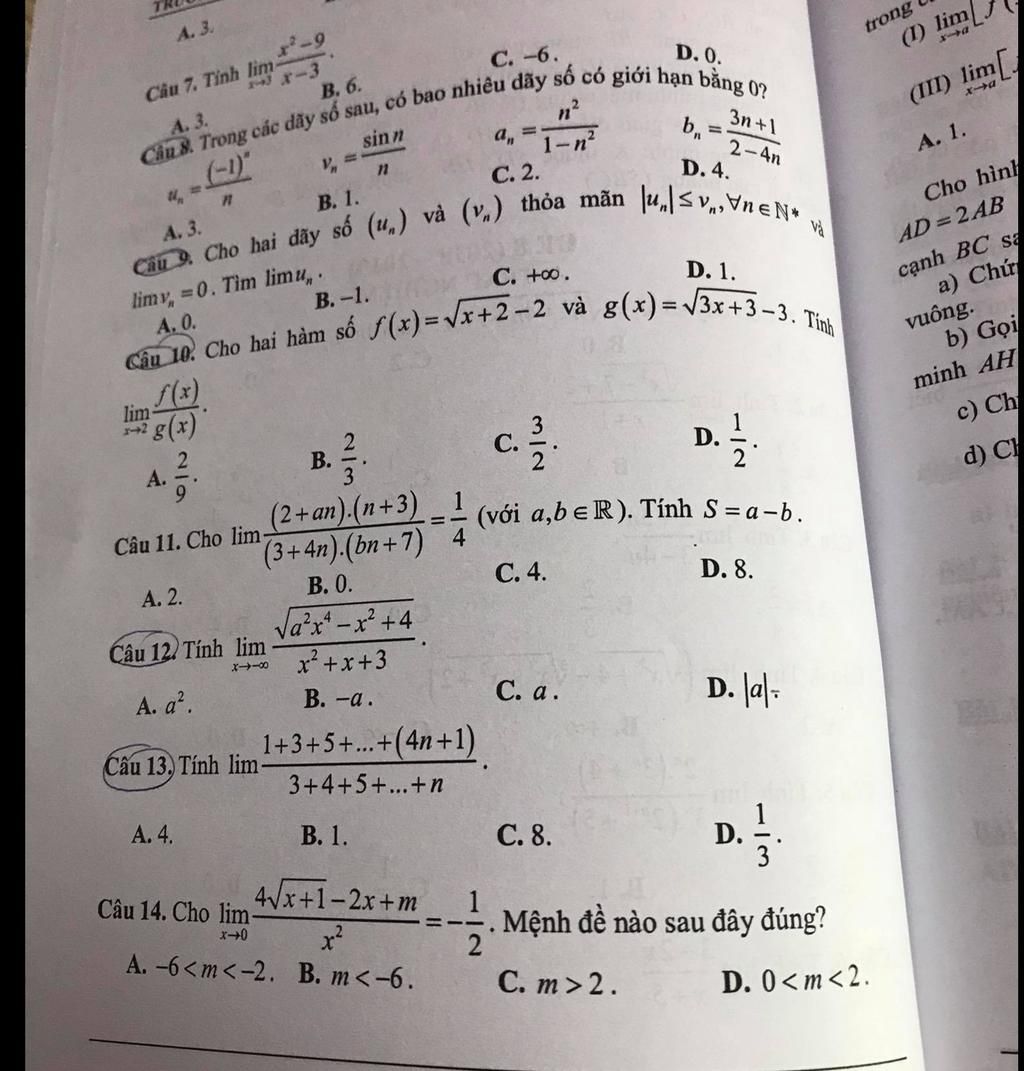 A. 3.
Câu 7. Tính lim x→3 (x² − 9)/(x − 3).
A. 3. B. 6. C. −6. D. 0.
Câu 8. Trong các dãy số sau, có bao nhiêu dãy số có giới hạn bằng 0?
uₙ = (−1)ⁿ/n vₙ = sin n/n aₙ = n²/(1 − n²) bₙ = (3n + 1)/(2 − 4n)
A. 3. B. 1. C. 2. D. 4.
Câu 9. Cho hai dãy số (uₙ) và (vₙ) thỏa mãn |uₙ| ≤ vₙ, ∀n ∈ ℕ* và
lim vₙ = 0. Tìm lim uₙ.
A. 0. B. −1. C. +∞. D. 1.
Câu 10. Cho hai hàm số f(x) = √(x + 2) − 2 và g(x) = √(3x + 3) − 3. Tính
lim x→2 f(x)/g(x).
A. 2/9. B. 2/3. C. 3/2. D. 1/2.
Câu 11. Cho lim (2 + an).(n + 3)/(3 + 4n).(bn + 7) = 1/4 (với a,b ∈ ℝ). Tính S = a − b.
A. 2. B. 0. C. 4. D. 8.
Câu 12. Tính lim x→−∞ √(a²x⁴ − x² + 4)/(x² + x + 3).
A. a². B. −a. C. a. D. |a|.
Câu 13. Tính lim (1 + 3 + 5 + ... + (4n + 1))/(3 + 4 + 5 + ... + n).
A. 4. B. 1. C. 8. D. 1/3.
Câu 14. Cho lim x→0 (4√(x + 1) − 2x + m)/x² = −1/2. Mệnh đề nào sau đây đúng?
A. −6 < m < −2. B. m < −6. C. m > 2. D. 0 < m < 2.
trong
(I) lim x→a [f(
(III) lim x→a [
A. 1.
Cho hình
AD = 2AB
cạnh BC
a) Chứ
vuông.
b) Gọi
minh AH
c) Ch
d) C